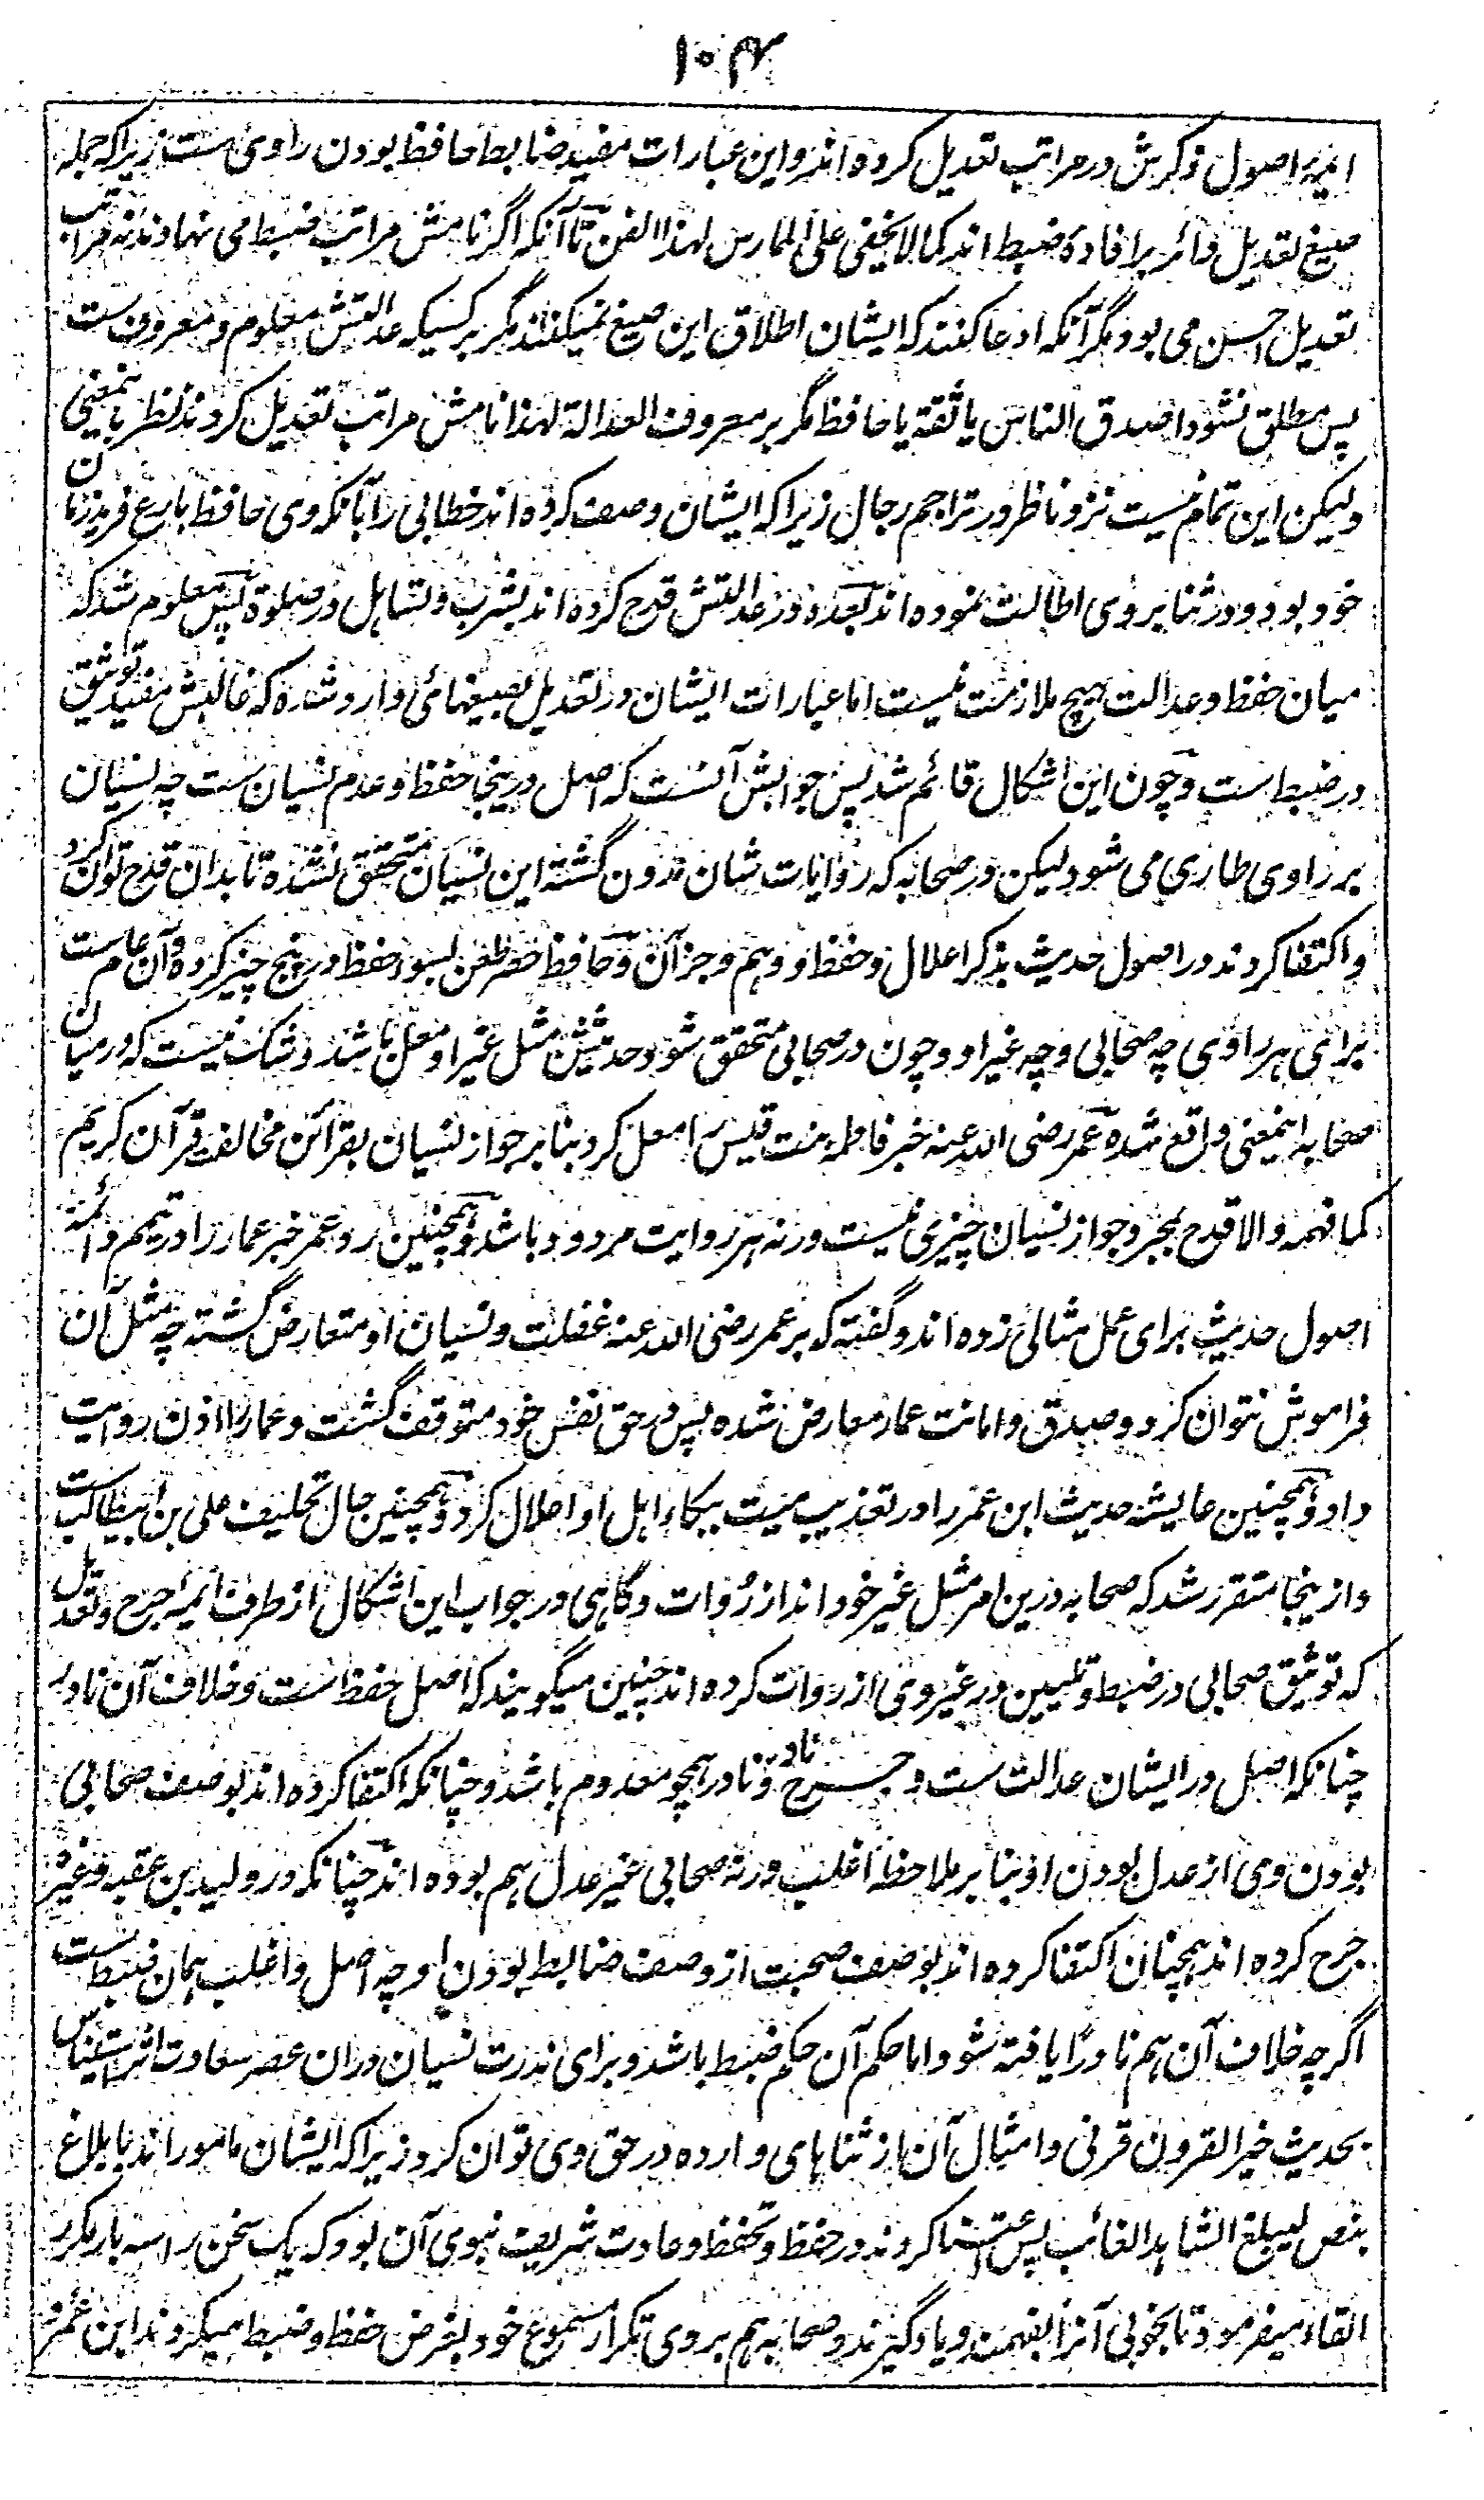 ۱۰۴
ایمهٔ اصول ذکرش در مراتب تعدیل کرده اند و این عبارات مفید ضابط حافظ بودن راوی ست زیرا که جمله
صیغ تعدیل دائر بر افادهٔ ضبط اند کما لا یخفی علی الممارس لهذا الفن تا آنکه اگر نامش مراتب ضبط می نهادند نه مراتب
تعدیل احسن می بود مگر آنکه ادعا کنند که ایشان اطلاق این صیغ نمیکنند مگر بر کسیکه عدالتش معلوم و معروف ست
پس مطلق نشود اصدق الناس یا ثقة یا حافظ مگر بر معروف العدالة لهذا نامش مراتب تعدیل کردند نظر باینمعنی
ولیکن این تمام نیست نزد ناظر در تراجم رجال زیرا که ایشان وصف کرده اند خطابی را بآنکه وی حافظ بارع فرید زمان
خود بود و در ثنا بروی اطالت نموده اند بعده در عدالتش قدح کرده اند بشرب و تساهل در صلوة پس معلوم شد که
میان حفظ و عدالت هیچ ملازمت نیست اما عبارات ایشان در تعدیل بصیغهائی وارد شده که غالبش مفید توثیق
در ضبط است و چون این اشکال قائم شد پس جوابش آنست که اصل درینجا حفظ و عدم نسیان ست چه نسیان
بر راوی طاری می شود لیکن در صحابه که روایات شان مدون گشته این نسیان متحقق نشده تا بدان قدح توان کرد
و اکتفا کردند در اصول حدیث بذکر اعلال و حفظ و وهم و جز آن و حافظ حصر طعن بسوء حفظ در پنج چیز کرده و آن عام ست
برای هر راوی چه صحابی و چه غیر او و چون در صحابی متحقق شود حدیثش مثل غیر او معل باشد و شک نیست که در میان
صحابه اینمعنی واقع شده عمر رضی الله عنه خبر فاطمه بنت قیس را معل کرد بنا بر جواز نسیان بقرائن مخالفت قرآن کریم
کما فهمه والا قدح بمجرد جواز نسیان چیزی نیست ورنه هر روایت مردود باشد و همچنین رد عمر خبر عمار را در تیمم و ائمهٔ
اصول حدیث برای عمل مثالی زده اند و گفته که بر عمر رضی الله عنه غفلت و نسیان او متعارض گشته چه مثل آن
فراموش نتوان کرد و صدق و امانت عمار معارض شده پس در حق نفس خود متوقف گشت و عمار را اذن روایت
داد و همچنین عایشه حدیث ابن عمر را در تعذیب میت ببکاء اهل او اعلال کرد و همچنین حال تحلیف علی بن ابیطالب ست
و از ینجا متقرر شد که صحابه درین امر مثل غیر خود اند از رُوات و گاهی در جواب این اشکال از طرف ایمهٔ جرح و تعدیل
که توثیق صحابی در ضبط و تلیین در غیر وی از روات کرده اند چنین میگویند که اصل حفظ ست و خلاف آن نادر
چنانکه اصل در ایشان عدالت ست و جرح نادر و نادر همچو معدوم باشد و چنانکه اکتفا کرده اند بوصف صحابی
بودن وی از عدل بودن او بنا بر ملاحظه اغلب ورنه صحابی غیر عدل هم بوده اند چنانکه در ولید بن عقبه و غیرش
جرح کرده اند همچنان اکتفا کرده اند بوصف صحبت از وصف ضابط بودن او چه اصل و اغلب همان ضبط ست
اگرچه خلاف آن هم نادرًا یافته شود اما حکم آن حکم ضبط باشد و برای ندرت نسیان دران عصر سعادت اثر استیناس
بحدیث خیر القرون قرنی و امثال آن از ثناهای وارده در حق وی توان کرد زیرا که ایشان مامور اند بابلاغ
بنص لیبلغ الشاهد الغائب پس اعتنا کردند در حفظ و تحفظ و عادت شریف نبوی آن بود که یک سخن را سه بار مکرر
القاء میفرمود تا بخوبی آنرا بفهمند و یاد گیرند و صحابه هم بروی تکرار مسموع خود بغرض حفظ و ضبط میکردند ابن عمر